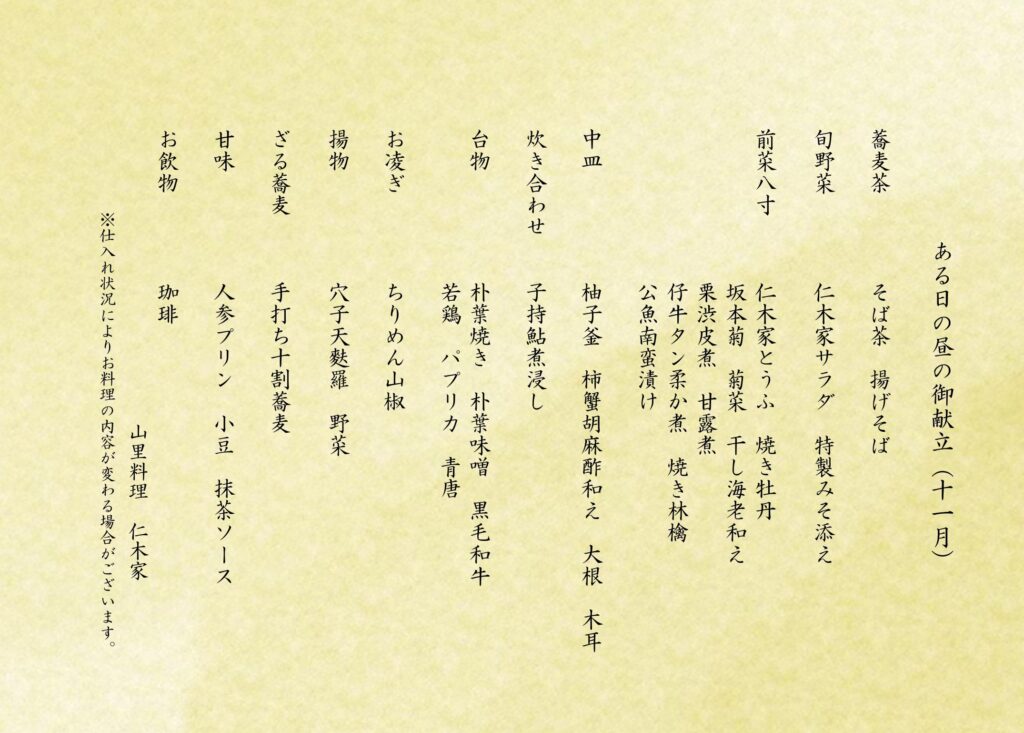 ある日の昼の御献立（十一月）
蕎麦茶　そば茶　揚げそば
旬野菜　仁木家サラダ　特製みそ添え
前菜八寸　仁木家とうふ　焼き牡丹
坂本菊　菊菜　干し海老和え
栗渋皮煮　甘露煮
仔牛タン柔か煮　焼き林檎
公魚南蛮漬け
中皿　柚子釜　柿蟹胡麻酢和え　大根　木耳
炊き合わせ　子持鮎煮浸し
台物　朴葉焼き　朴葉味噌　黒毛和牛
若鶏　パプリカ　青唐
お凌ぎ　ちりめん山椒
揚物　穴子天麩羅　野菜
ざる蕎麦　手打ち十割蕎麦
甘味　人参プリン　小豆　抹茶ソース
お飲物　珈琲
山里料理　仁木家
※仕入れ状況によりお料理の内容が変わる場合がございます。